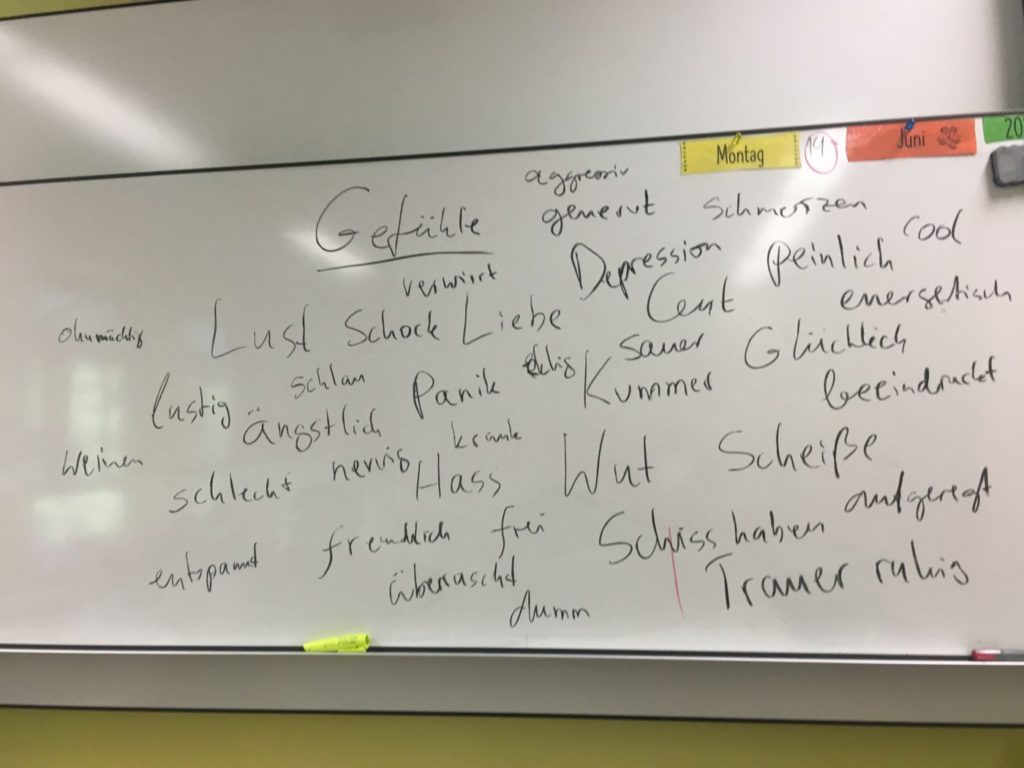 Montag 14 Juni 20
aggressiv
Gefühle genervt Schmerzen
verwirrt Depression peinlich cool
ohnmächtig Lust Schock Liebe energetisch
lustig schlau Panik eklig sauer Glücklich
ängstlich Kummer beeindruckt
weinen schlecht nervig krank Hass Wut Scheiße
entspannt freundlich frei Schiss haben aufgeregt
überraschd Trauer ruhig
dumm